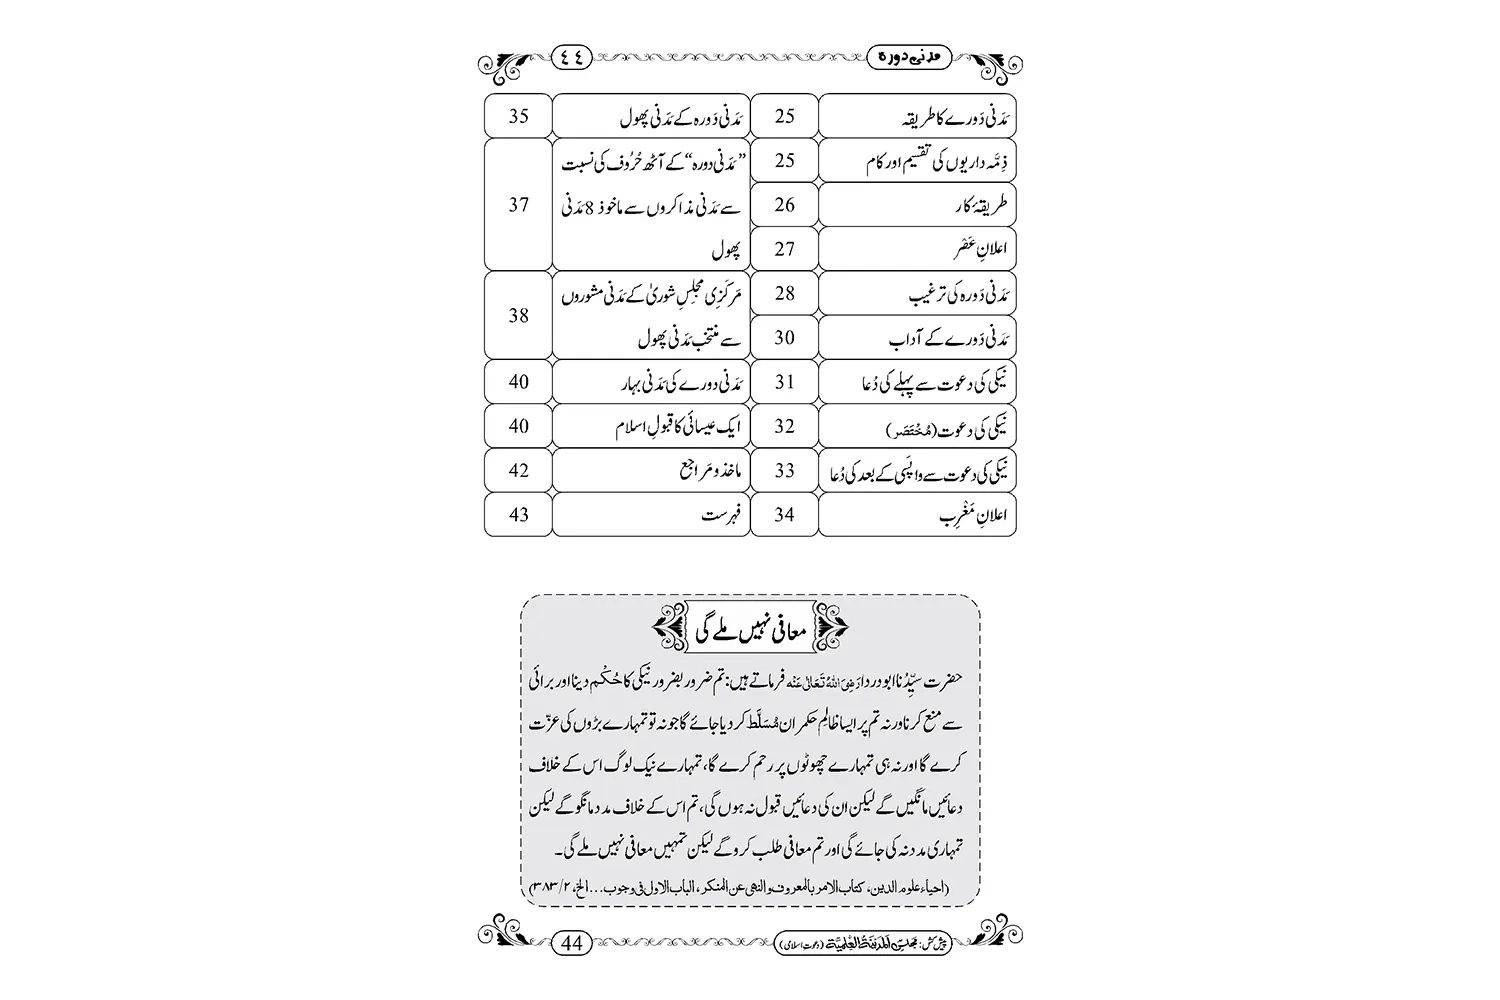 مدنی دورہ ٤٤
مَدَنی دَورے کا طریقہ 25 مَدَنی دَورہ کے مَدَنی پھول 35
ذِمَّہ داریوں کی تقسیم اور کام 25 ”مَدَنی دورہ“ کے آٹھ حُرُوف کی نسبت
طریقۂ کار 26 سے مَدَنی مذاکروں سے ماخوذ 8 مَدَنی 37
اعلانِ عَصْر 27 پھول
مَدَنی دَورہ کی ترغیب 28 مَرکَزِی مجلِسِ شوریٰ کے مَدَنی مشوروں 38
مَدَنی دَورے کے آداب 30 سے منتخب مَدَنی پھول
نیکی کی دعوت سے پہلے کی دُعا 31 مَدَنی دورے کی مَدَنی بہار 40
نیکی کی دعوت (مُخْتَصَر) 32 ایک عیسائی کا قبولِ اسلام 40
نیکی کی دعوت سے واپَسی کے بعد کی دُعا 33 ماخذ و مَراجع 42
اعلانِ مَغْرِب 34 فہرست 43
معافی نہیں ملے گی
حضرت سیِّدُنا ابو دردا رَضِیَ اللہُ تَعَالٰی عَنْہ فرماتے ہیں: تم ضرور بضرور نیکی کا حُکْم دینا اور برائی
سے منع کرنا ورنہ تم پر ایسا ظالِم حکمران مُسَلَّط کر دیا جائے گا جو نہ تو تمہارے بڑوں کی عزّت
کرے گا اور نہ ہی تمہارے چھوٹوں پر رحم کرے گا، تمہارے نیک لوگ اس کے خلاف
دعائیں مانگیں گے لیکن ان کی دعائیں قبول نہ ہوں گی، تم اس کے خلاف مدد مانگو گے لیکن
تمہاری مدد نہ کی جائے گی اور تم معافی طلب کرو گے لیکن تمہیں معافی نہیں ملے گی۔
(احیاء علوم الدین، کتاب الامر بالمعروف والنهی عن المنکر، الباب الاول فی وجوب... الخ، ۲/۳۸۳)
پیش کش: مجلس المدینۃ العلمیۃ (دعوتِ اسلامی) 44